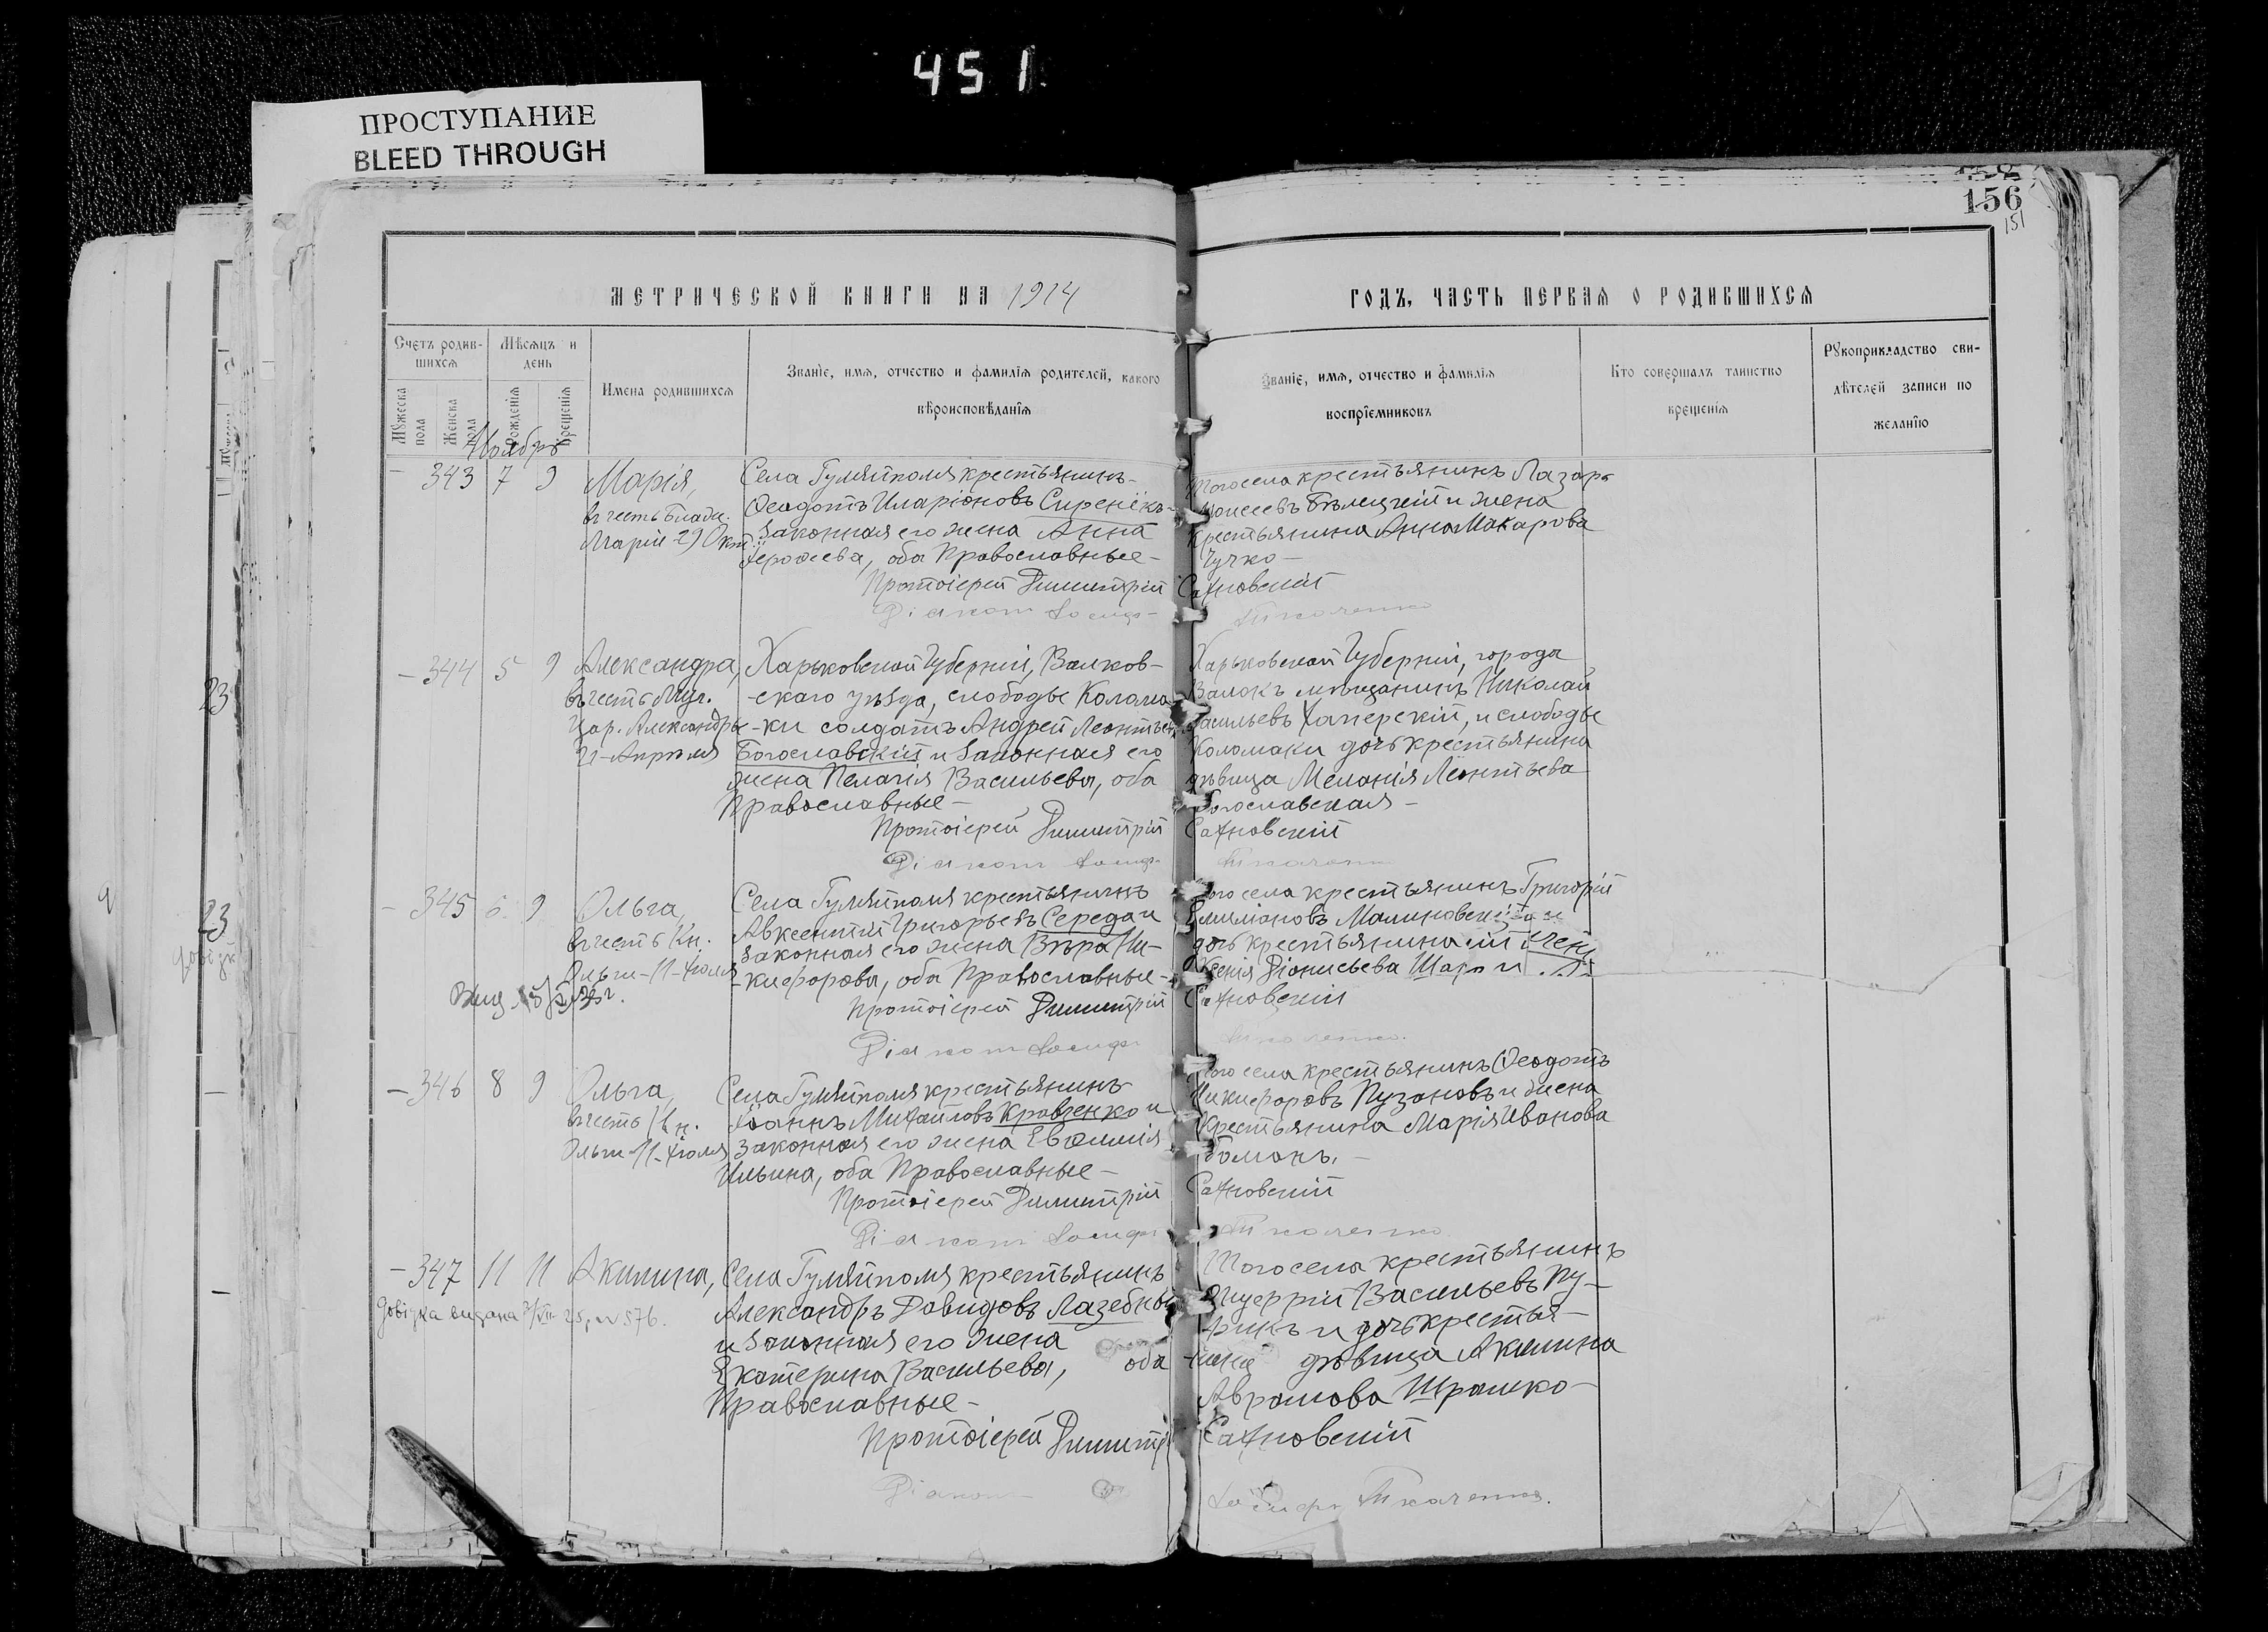 451.
ПРОСТУПАНИЕ
BLEED THROUGH
156
151
МЕТРИЧЕСКОЙ КНИГИ НА 1914
ГОДЪ, ЧАСТЬ ПЕРВАЯ О РОДИВШИХСЯ
Счетъ родив-
шихся
Мѣсяцъ и
день
Мужеска
пола
Женска
пола
рожденія
крещенія
Имена родившихся
Званіе, имя, отчество и фамилія родителей, какого
вѣроисповѣданія
Званіе, имя, отчество и фамилія
воспріемниковъ
Кто совершалъ таинство
крещенія
Рукоприкладство сви-
дѣтелей записи по
желанію
Ноябрь
343 7 9 Марія,
въ честь
Маріи 29 Окт.
Села Гуляйполя крестьянинъ
Ѳеодотъ Иларіоновъ
законная его жена Анна
оба Православные-
того села крестьянинъ Лазарь
Моисеевъ Бѣлецкій и жена
крестьянина Анна Макарова
Чучко-
Протоіерей Димитрій Сахновскій
Діаконъ Іосифъ Ткаченко
344 5 9 Александра,
въ честь Муч.
Цар. Александры
21-Апрѣля
Харьковской Губерніи, Валков-
-скаго уѣзда, слободы Колома-
-ки солдатъ Андрей Леонтьевъ
Богославскій и законная его
жена Пелагія Васильева, оба
Православные-
Харьковской Губерніи, города
Валокъ мѣщанинъ Николай
Васильевъ и слободы
Коломаки дочь крестьянина
дѣвица Меланія Леонтьева
Богославская-
Протоіерей Димитрій Сахновскій
Діаконъ Іосифъ Ткаченко
345 9 Ольга,
въ честь Кн.
Ольги-11-Іюля
Села Гуляйполя крестьянинъ
Авксентій Григорьевъ Середа и
законная его жена Вѣра Ни-
-кифорова, оба Православные-
того села крестьянинъ Григорій
Малиновскій и
дочь крестьянина
Ксенія Діонисьева
Протоіерей Димитрій Сахновскій
Діаконъ Іосифъ Ткаченко.
346 8 9 Ольга,
въ честь Кн.
Ольги-11-Іюля
Села Гуляйполя крестьянинъ
Іоаннъ Михайловъ Кравченко и
законная его жена Евѳимія
Ильина, оба Православные-
того села крестьянинъ Ѳеодотъ
Никифоровъ Пузановъ и жена
Крестьянина Марія Иванова
Протоіерей Димитрій Сахновскій
Діаконъ Іосифъ Ткаченко
347 11 11 Акилина,
Довідка видана
Села Гуляйполя крестьянинъ
Александръ Давидовъ Лазебный
и законная его жена
Екатерина Васильева, оба
Православные-
Того села крестьянинъ
Васильевъ Пу-
и дочь крестья-
нина дѣвица Акилина
Аврамова Шрамко-
Протоіерей Димитрій Сахновскій
Діаконъ Іосифъ Ткаченко.